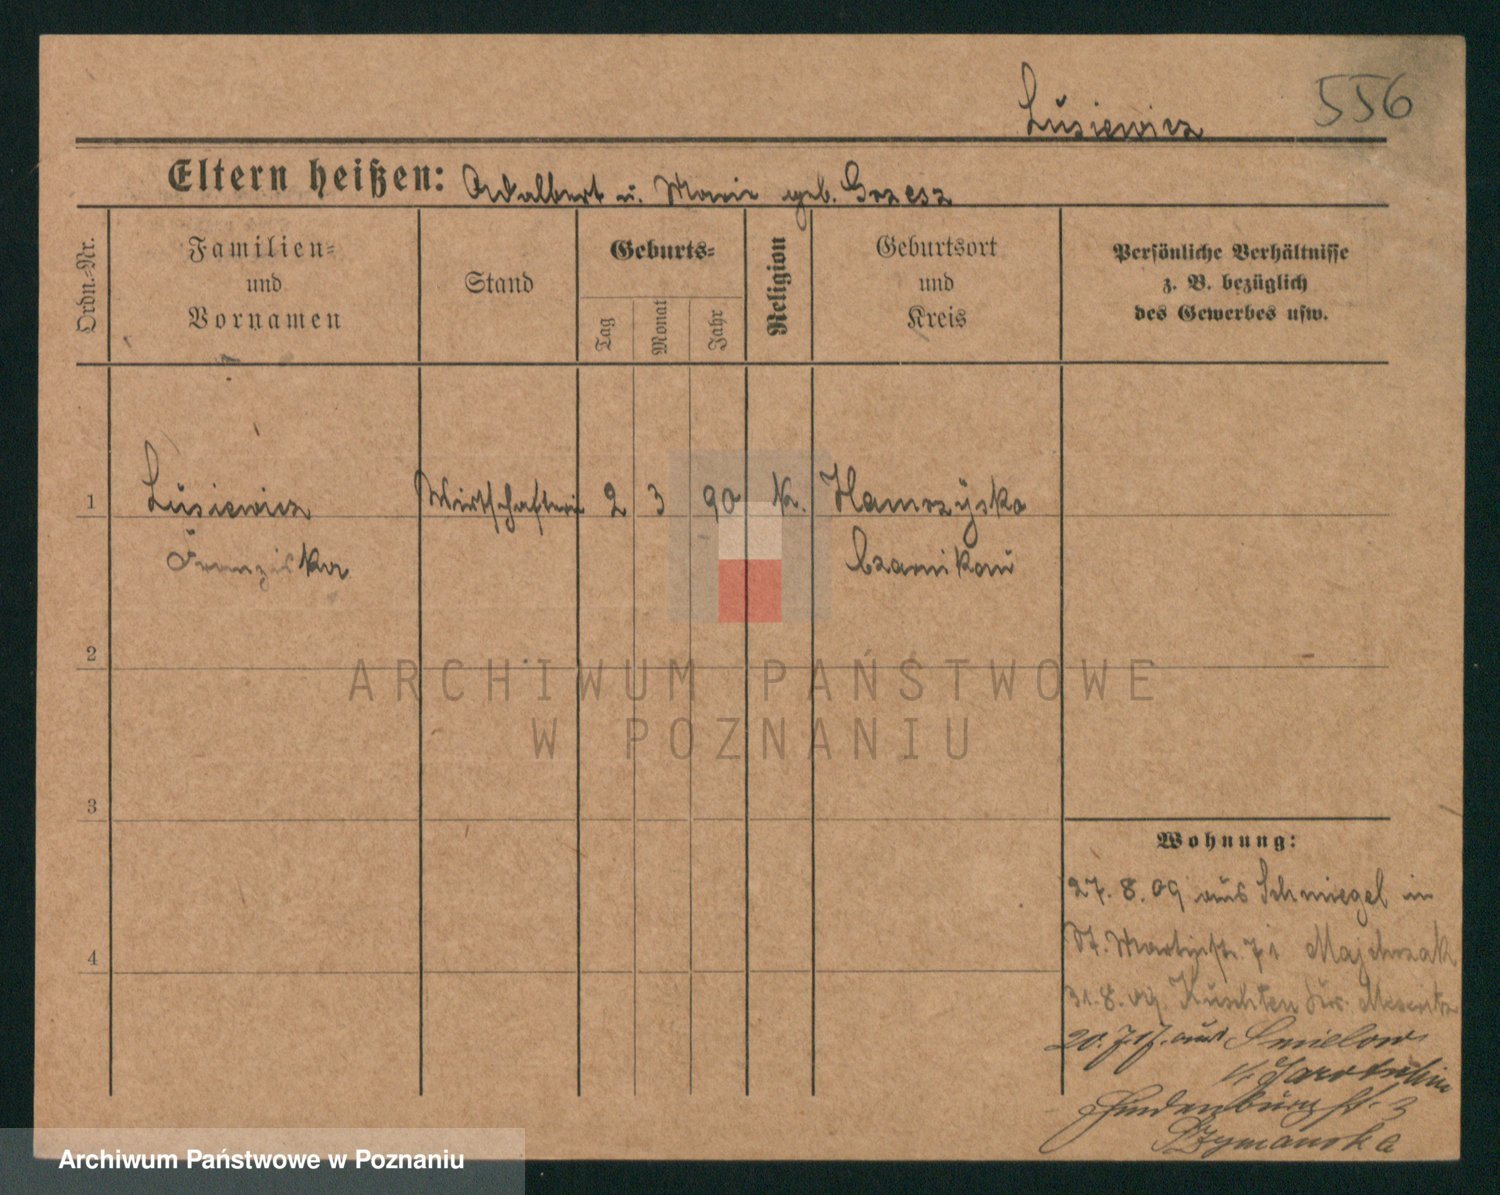 556
Lusiewicz
Eltern heißen: Adalbert u. Marie geb. Grzesz
Ordn.-Nr.
Familien-
und
Vornamen
Stand
Geburts-
Tag
Monat
Jahr
Religion
Geburtsort
und
Kreis
Persönliche Verhältnisse
z. B. bezüglich
des Gewerbes usw.
1 Lusiewicz Wirtschafterin 2 3 90 K. Hamrzysko
Franziska Czarnikau
2
ARCHIWUM PAŃSTWOWE
W POZNANIU
3
Wohnung:
27. 8. 09 aus Schmiegel in
St. Martinstr. 71 Majchrzak
31. 8. 09. Kuschten Meseritz
20. 7. 17. aus Smielow
Jarotschin
Hindenburgst. 3
Szymanska
4
Archiwum Państwowe w Poznaniu